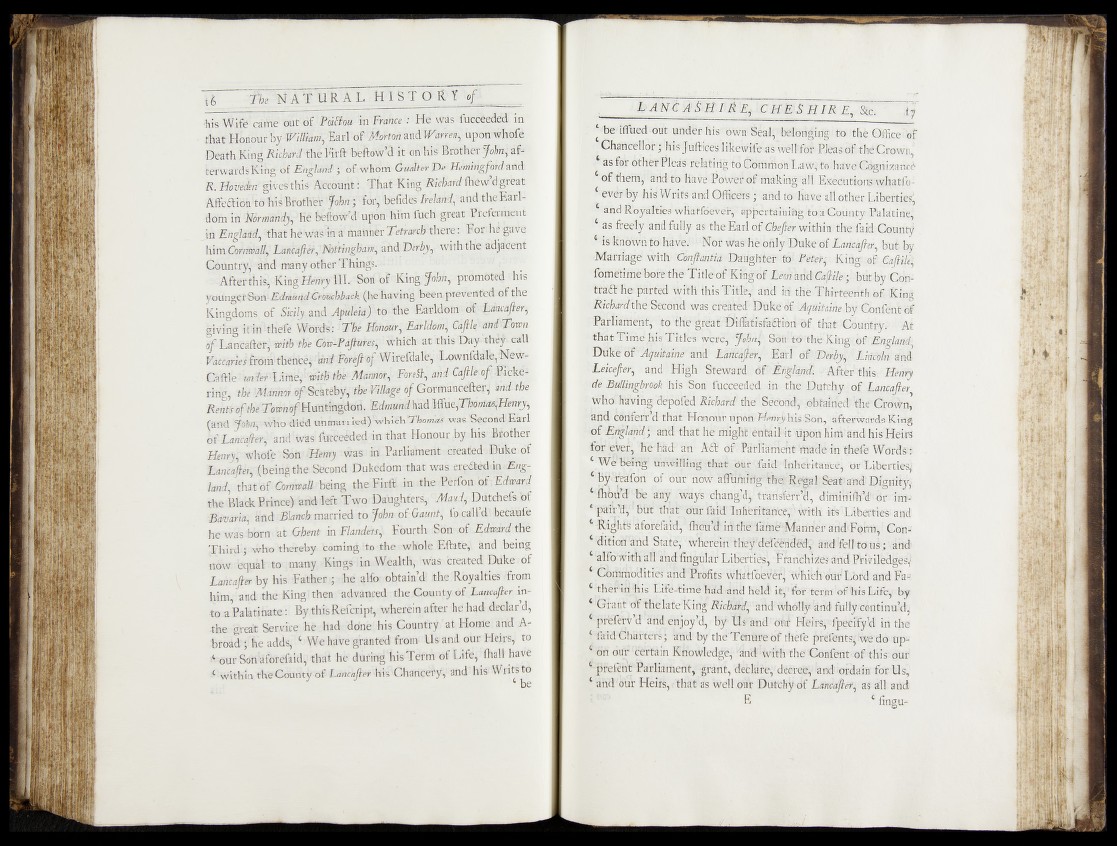 16 The NATURAL HISTORY of
his Wife came out of Poictou in France : He was ſucceeded in
that Honour by William, Earl of Morton and Warren, upon whoſe
Death King Richard the Firſt beſtow'd it on his Brother John, af-
terwards King of England ; of whom Gualter De Hemingford and
R. Hoveden gives this Account: That King Richard ſhew'd great
Affection to his Brother John ; for, beſides Ireland, and the Earl-
dom in Normandy, he beſtow'd upon him ſuch great Preferment
in England, that he was in a manner Tetrarch there: For he gave
him Cornwall, Lancaſter, Nottingham, and Derby, with the adjacent
Country, and many other Things.
After this, King Henry III. Son of King John, promoted his
younger Son Edmund Crouchback (he having been prevented of the
Kingdoms of Sicily and Apuleia) to the Earldom of Lancaſter,
giving it in theſe Words: The Honour, Earldom, Caſtle and Town
of Lancaſter, with the Cow-Paſtures, which at this Day they call
Vaccaries from thence, and Foreſt of Wireſdale, Lownſdale, New-
Caſtle under Lime, with the Mannor, Foreſt, and Caſtle of Picke-
ring, the Mannor of Scateby, the Village of Gormanceſter, and the
Rents of the Town of Huntingdon. Edmund had Iſſue, Thomas, Henry,
(and John, who died unmarried) which Thomas was Second Earl
of Lancaſter, and was ſucceeded in that Honour by his Brother
Henry, whoſe Son Henry was in Parliament created Duke of
Lancaſter, (being the Second Dukedom that was erected in Eng-
land, that of Cornwall being the Firſt in the Perſon of Edward
the Black Prince) and left Two Daughters, Maud, Dutcheſs of
Bavaria, and Blanch married to John of Gaunt, ſo call'd becauſe
he was born at Ghent in Flanders, Fourth Son of Edward the
Third ; who thereby coming to the whole Eſtate, and being
now equal to many Kings in Wealth, was created Duke of
Lancaſter by his Father ; he alſo obtain'd the Royalties from
him, and the King then advanced the County of Lancaſter in-
to a Palatinate : By this Reſcript, wherein after he had declar'd,
the great Service he had done his Country at Home and A-
broad ; he adds, ‘ We have granted from Us and our Heirs, to
‘ our Son aforeſaid, that he during his Term of Life, ſhall have
‘ within the County of Lancaſter his Chancery, and his Writs to
‘ be
LANCASHIRE, CHESHIRE, &c. 17
‘ be iſſued out under his own Seal, belonging to the Office of
‘ Chancellor ; his Juſtices likewiſe as well for Pleas of the Crown,
‘ as for other Pleas relating to Common Law, to have Cognizance
‘ of them, and to have Power of making all Executions whatſo-
‘ ever by his Writs and Officers ; and to have all other Liberties,
‘ and Royalties whatſoever, appertaining to a County Palatine,
‘ as freely and fully as the Earl of Cheſter within the ſaid County
‘ is known to have. Nor was he only Duke of Lancaſter, but by
Marriage with Conſtantia Daughter to Peter, King of Caſtile,
ſometime bore the Title of King of Leon and Caſtile ; but by Con-
tract he parted with this Title, and in the Thirteenth of King
Richard the Second was created Duke of Aquitaine by Conſent of
Parliament, to the great Diſſatisfaction of that Country. At
that Time his Titles were, John, Son to the King of England,
Duke of Aquitaine and Lancaſter, Earl of Derby, Lincoln and
Leiceſter, and High Steward of England. After this Henry
de Bullingbrook his Son ſucceeded in the Dutchy of Lancaſter,
who having depoſed Richard the Second, obtained the Crown,
and conferr'd that Honour upon Henry his Son, afterwards King
of England ; and that he might entail it upon him and his Heirs
for ever, he had an Act of Parliament made in theſe Words :
‘ We being unwilling that our ſaid Inheritance, or Liberties,
‘ by reaſon of our now aſſuming the Regal Seat and Dignity,
‘ ſhou'd be any ways chang'd, transferr'd, diminiſh'd or im-
‘ pair'd, but that our ſaid Inheritance, with its Liberties and
‘ Rights aforeſaid, ſhou'd in the ſame Manner and Form, Con-
‘ dition and State, wherein they deſcended, and fell to us ; and
‘ alſo with all and ſingular Liberties, Franchizes and Priviledges,
‘ Commodities and Profits whatſoever, which our Lord and Fa-
‘ ther in his Life-time had and held it, for term of his Life, by
‘ Grant of the late King Richard, and wholly and fully continu'd,
‘ preſerv'd and enjoy'd, by Us and our Heirs, ſpecify'd in the
‘ ſaid Charters ; and by the Tenure of theſe preſents, we do up-
‘ on our certain Knowledge, and with the Conſent of this our
‘ preſent Parliament, grant, declare, decree, and ordain for Us,
‘ and our Heirs, that as well our Dutchy of Lancaſter, as all and
E ‘ ſingu-